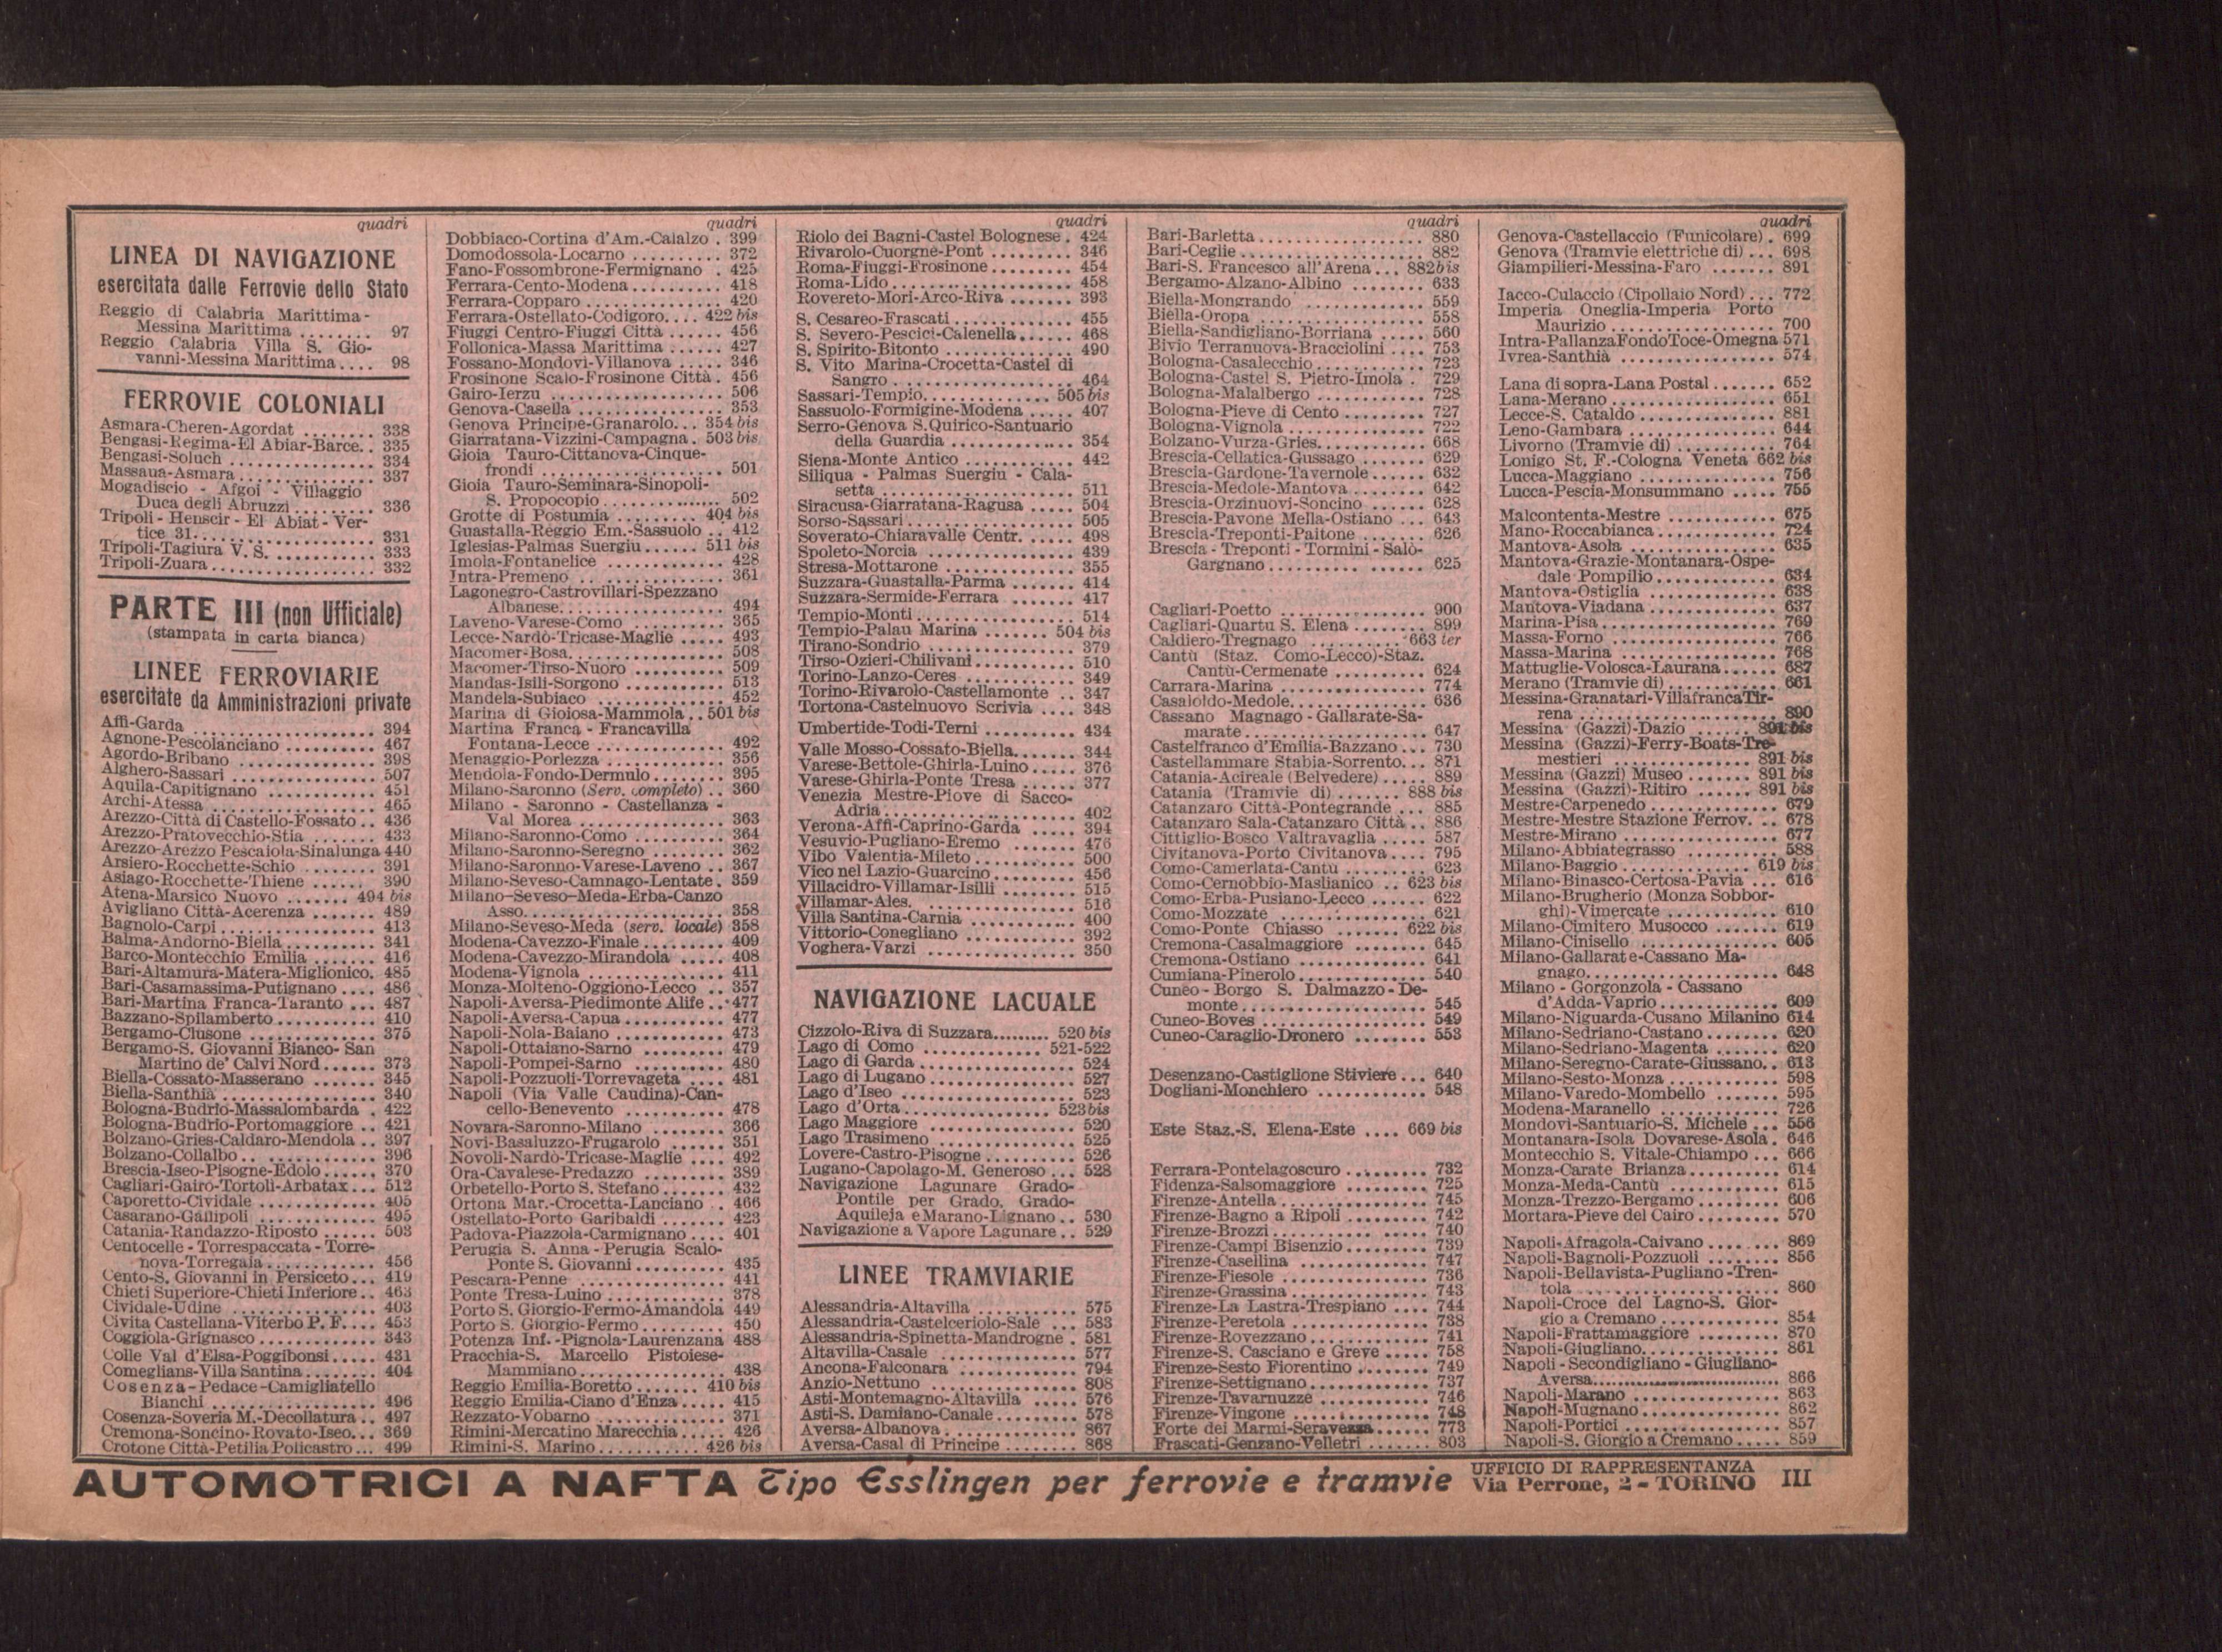 quadri
LINEA DI NAVIGAZIONE
esercitata dalle Ferrovie dello Stato
Reggio di Calabria Marittima-
Messina Marittima ........ 97
Reggio Calabria Villa S. Gio-
vanni-Messina Marittima.... 98
FERROVIE COLONIALI
Asmara-Cheren-Agordat ........ 338
Bengasi-Regima-El Abiar-Barce.. 335
Bengasi-Soluch ............... 334
Massaua-Asmara .............. 337
Mogadiscio - Afgoi - Villaggio
Duca degli Abruzzi ......... 336
Tripoli - Henscir - El Abiat - Ver-
tice 31.................. 331
Tripoli-Tagiura V. S. .......... 333
Tripoli-Zuara ................. 332
PARTE III (non Ufficiale)
(stampata in carta bianca)
LINEE FERROVIARIE
esercitate da Amministrazioni private
Affi-Garda ................... 394
Agnone-Pescolanciano .......... 467
Agordo-Bribano ............... 398
Alghero-Sassari ............... 507
Aquila-Capitignano ........... 451
Archi-Atessa ................. 465
Arezzo-Città di Castello-Fossato .. 436
Arezzo-Pratovecchio-Stia ....... 433
Arezzo-Arezzo Pescaiola-Sinalunga 440
Arsiero-Rocchette-Schio ........ 391
Asiago-Rocchette-Thiene ...... 390
Atena-Marsico Nuovo ....... 494 bis
Avigliano Città-Acerenza ....... 489
Bagnolo-Carpi ................ 413
Balma-Andorno-Biella ......... 341
Barco-Montecchio Emilia ....... 416
Bari-Altamura-Matera-Miglionico. 485
Bari-Casamassima-Putignano .... 486
Bari-Martina Franca-Taranto ... 487
Bazzano-Spilamberto ........... 410
Bergamo-Clusone .............. 375
Bergamo-S. Giovanni Bianco- San
Martino de' Calvi Nord...... 373
Biella-Cossato-Masserano ....... 345
Biella-Santhià ................ 340
Bologna-Budrio-Massalombarda . 422
Bologna-Budrio-Portomaggiore .. 421
Bolzano-Gries-Caldaro-Mendola .. 397
Bolzano-Collalbo .............. 396
Brescia-Iseo-Pisogne-Edolo...... 370
Cagliari-Gairo-Tortolì-Arbatax... 512
Caporetto-Cividale ............. 405
Casarano-Gallipoli ............. 495
Catania-Randazzo-Riposto ...... 503
Centocelle - Torrespaccata - Torre-
nova-Torregaia ............ 456
Cento-S. Giovanni in Persiceto... 419
Chieti Superiore-Chieti Inferiore.. 463
Cividale-Udine ................ 403
Civita Castellana-Viterbo P. F. ... 453
Coggiola-Grignasco ............. 343
Colle Val d'Elsa-Poggibonsi..... 431
Comeglians-Villa Santina ........ 404
Cosenza-Pedace-Camigliatello
Bianchi .................. 496
Cosenza-Soveria M.-Decollatura .. 497
Cremona-Soncino-Rovato-Iseo... 369
Crotone Città-Petilia Policastro... 499
quadri
Dobbiaco-Cortina d'Am.-Calalzo . 399
Domodossola-Locarno .......... 372
Fano-Fossombrone-Fermignano . 425
Ferrara-Cento-Modena .......... 418
Ferrara-Copparo ............... 420
Ferrara-Ostellato-Codigoro.... 422 bis
Fiuggi Centro-Fiuggi Città ...... 456
Follonica-Massa Marittima ...... 427
Fossano-Mondovì-Villanova ..... 346
Frosinone Scalo-Frosinone Città . 456
Gairo-Ierzu .................. 506
Genova-Casella ............... 353
Genova Principe-Granarolo... 354 bis
Giarratana-Vizzini-Campagna . 503 bis
Gioia Tauro-Cittanova-Cinque-
frondi .................... 501
Gioia Tauro-Seminara-Sinopoli-
S. Propocopio ............. 502
Grotte di Postumia ......... 404 bis
Guastalla-Reggio Em.-Sassuolo .. 412
Iglesias-Palmas Suergiu...... 511 bis
Imola-Fontanelice ............ 428
Intra-Premeno ............... 361
Lagonegro-Castrovillari-Spezzano
Albanese.................. 494
Laveno-Varese-Como .......... 365
Lecce-Nardò-Tricase-Maglie ..... 493
Macomer-Bosa................ 508
Macomer-Tirso-Nuoro .......... 509
Mandas-Isili-Sorgono ........... 513
Mandela-Subiaco .............. 452
Marina di Gioiosa-Mammola .. 501 bis
Martina Franca - Francavilla
Fontana-Lecce ............. 492
Menaggio-Porlezza ............ 356
Mendola-Fondo-Dermulo ........ 395
Milano-Saronno (Serv. completo) .. 360
Milano - Saronno - Castellanza -
Val Morea ................ 363
Milano-Saronno-Como .......... 364
Milano-Saronno-Seregno ........ 362
Milano-Saronno-Varese-Laveno .. 367
Milano-Seveso-Camnago-Lentate . 359
Milano-Seveso-Meda-Erba-Canzo
Asso..................... 358
Milano-Seveso-Meda (serv. locale) 358
Modena-Cavezzo-Finale ......... 409
Modena-Cavezzo-Mirandola ..... 408
Modena-Vignola .............. 411
Monza-Molteno-Oggiono-Lecco .. 357
Napoli-Aversa-Piedimonte Alife .. 477
Napoli-Aversa-Capua ........... 477
Napoli-Nola-Baiano ............ 473
Napoli-Ottaiano-Sarno ......... 479
Napoli-Pompei-Sarno .......... 480
Napoli-Pozzuoli-Torrevageta .... 481
Napoli (Via Valle Caudina)-Can-
cello-Benevento ............ 478
Novara-Saronno-Milano ........ 366
Novi-Basaluzzo-Frugarolo ...... 351
Novoli-Nardò-Tricase-Maglie .... 492
Ora-Cavalese-Predazzo ......... 389
Orbetello-Porto S. Stefano ....... 432
Ortona Mar.-Crocetta-Lanciano .. 466
Ostellato-Porto Garibaldi ....... 423
Padova-Piazzola-Carmignano .... 401
Perugia S. Anna - Perugia Scalo-
Ponte S. Giovanni .......... 435
Pescara-Penne ................ 441
Ponte Tresa-Luino ............. 378
Porto S. Giorgio-Fermo-Amandola 449
Porto S. Giorgio-Fermo ......... 450
Potenza Inf. -Pignola-Laurenzana 488
Pracchia-S. Marcello Pistoiese-
Mammiano ................ 438
Reggio Emilia-Boretto ....... 410 bis
Reggio Emilia-Ciano d'Enza..... 415
Rezzato-Vobarno .............. 371
Rimini-Mercatino Marecchia ..... 426
Rimini-S. Marino ........... 426 bis
quadri
Riolo dei Bagni-Castel Bolognese . 424
Rivarolo-Cuorgnè-Pont ......... 346
Roma-Fiuggi-Frosinone ......... 454
Roma-Lido ................... 458
Rovereto-Mori-Arco-Riva ....... 393
S. Cesareo-Frascati ............. 455
S. Severo-Pescici-Calenella....... 468
S. Spirito-Bitonto .............. 490
S. Vito Marina-Crocetta-Castel di
Sangro .................... 464
Sassari-Tempio.............. 505 bis
Sassuolo-Formigine-Modena ..... 407
Serro-Genova S.Quirico-Santuario
della Guardia .............. 354
Siena-Monte Antico ............ 442
Siliqua - Palmas Suergiu - Cala-
setta ...................... 511
Siracusa-Giarratana-Ragusa ..... 504
Sorso-Sassari .................. 505
Soverato-Chiaravalle Centr. ..... 498
Spoleto-Norcia ................ 439
Stresa-Mottarone .............. 355
Suzzara-Guastalla-Parma ....... 414
Suzzara-Sermide-Ferrara ....... 417
Tempio-Monti ................. 514
Tempio-Palau Marina ....... 504 bis
Tirano-Sondrio ................ 379
Tirso-Ozieri-Chilivani ........... 510
Torino-Lanzo-Ceres ............ 349
Torino-Rivarolo-Castellamonte .. 347
Tortona-Castelnuovo Scrivia .... 348
Umbertide-Todi-Terni .......... 434
Valle Mosso-Cossato-Biella....... 344
Varese-Bettole-Ghirla-Luino ..... 376
Varese-Ghirla-Ponte Tresa ...... 377
Venezia Mestre-Piove di Sacco-
Adria..................... 402
Verona-Affi-Caprino-Garda ..... 394
Vesuvio-Pugliano-Eremo ....... 476
Vibo Valentia-Mileto ........... 500
Vico nel Lazio-Guarcino ......... 456
Villacidro-Villamar-Isilli ........ 515
Villamar-Ales. ................ 516
Villa Santina-Carnia ........... 400
Vittorio-Conegliano ............ 392
Voghera-Varzi ................ 350
NAVIGAZIONE LACUALE
Cizzolo-Riva di Suzzara......... 520 bis
Lago di Como ............. 521-522
Lago di Garda ................ 524
Lago di Lugano ............... 527
Lago d'Iseo .................. 523
Lago d'Orta ................ 523bis
Lago Maggiore ............... 520
Lago Trasimeno .............. 525
Lovere-Castro-Pisogne ......... 526
Lugano-Capolago-M. Generoso ... 528
Navigazione Lagunare Grado-
Pontile per Grado, Grado-
Aquileja e Marano-Lignano .. 530
Navigazione a Vapore Lagunare .. 529
LINEE TRAMVIARIE
Alessandria-Altavilla ........... 575
Alessandria-Castelceriolo-Sale ... 583
Alessandria-Spinetta-Mandrogne . 581
Altavilla-Casale ............... 577
Ancona-Falconara ............. 794
Anzio-Nettuno ................ 808
Asti-Montemagno-Altavilla ..... 576
Asti-S. Damiano-Canale ......... 578
Aversa-Albanova ............... 867
Aversa-Casal di Principe ........ 868
quadri
Bari-Barletta .................. 880
Bari-Ceglie ................... 882
Bari-S. Francesco all'Arena ... 882bis
Bergamo-Alzano-Albino ....... 633
Biella-Mongrando .............. 559
Biella-Oropa .................. 558
Biella-Sandigliano-Borriana ..... 560
Bivio Terranuova-Bracciolini .... 753
Bologna-Casalecchio ............ 723
Bologna-Castel S. Pietro-Imola . 729
Bologna-Malalbergo ........... 728
Bologna-Pieve di Cento ......... 727
Bologna-Vignola .............. 722
Bolzano-Vurza-Gries............ 668
Brescia-Cellatica-Gussago ....... 629
Brescia-Gardone-Tavernole ...... 632
Brescia-Medole-Mantova ........ 642
Brescia-Orzinuovi-Soncino ...... 628
Brescia-Pavone Mella-Ostiano ... 643
Brescia-Treponti-Paitone ....... 626
Brescia - Treponti - Tormini - Salò-
Gargnano .......... ...... 625
Cagliari-Poetto ................ 900
Cagliari-Quartu S. Elena ........ 899
Caldiero-Tregnago .......... 663 ter
Cantù (Staz. Como-Lecco)-Staz.
Cantù-Cermenate .......... 624
Carrara-Marina ............... 774
Casaloldo-Medole.............. 636
Cassano Magnago - Gallarate-Sa-
marate .................... 647
Castelfranco d'Emilia-Bazzano ... 730
Castellammare Stabia-Sorrento... 871
Catania-Acireale (Belvedere) ..... 889
Catania (Tramvie di) ....... 888 bis
Catanzaro Città-Pontegrande ... 885
Catanzaro Sala-Catanzaro Città .. 886
Cittiglio-Bosco Valtravaglia ..... 587
Civitanova-Porto Civitanova .... 795
Como-Camerlata-Cantù ......... 623
Como-Cernobbio-Maslianico .. 623 bis
Como-Erba-Pusiano-Lecco ...... 622
Como-Mozzate ................ 621
Como-Ponte Chiasso ....... 622 bis
Cremona-Casalmaggiore ........ 645
Cremona-Ostiano .............. 641
Cumiana-Pinerolo .............. 540
Cuneo - Borgo S. Dalmazzo - De-
monte .................... 545
Cuneo-Boves ................. 549
Cuneo-Caraglio-Dronero ........ 553
Desenzano-Castiglione Stiviere ... 640
Dogliani-Monchiero ............ 548
Este Staz.-S. Elena-Este .... 669 bis
Ferrara-Pontelagoscuro ......... 732
Fidenza-Salsomaggiore ......... 725
Firenze-Antella ................ 745
Firenze-Bagno a Ripoli ......... 742
Firenze-Brozzi ................. 740
Firenze-Campi Bisenzio ......... 739
Firenze-Casellina .............. 747
Firenze-Fiesole ................ 736
Firenze-Grassina ............... 743
Firenze-La Lastra-Trespiano .... 744
Firenze-Peretola ............... 738
Firenze-Rovezzano ............. 741
Firenze-S. Casciano e Greve ..... 758
Firenze-Sesto Fiorentino ........ 749
Firenze-Settignano ............. 737
Firenze-Tavarnuzze ............ 746
Firenze-Vingone ............... 748
Forte dei Marmi-Seravezza ...... 773
Frascati-Genzano-Velletri ....... 803
quadri
Genova-Castellaccio (Funicolare) . 699
Genova (Tramvie elettriche di) ... 698
Giampilieri-Messina-Faro ....... 891
Iacco-Culaccio (Cipollaio Nord) ... 772
Imperia Oneglia-Imperia Porto
Maurizio .................. 700
Intra-PallanzaFondoToce-Omegna 571
Ivrea-Santhià ................ 574
Lana di sopra-Lana Postal ....... 652
Lana-Merano ................. 651
Lecce-S. Cataldo .............. 881
Leno-Gambara ............... 644
Livorno (Tramvie di) ........... 764
Lonigo St. F.-Cologna Veneta 662 bis
Lucca-Maggiano .............. 756
Lucca-Pescia-Monsummano ..... 755
Malcontenta-Mestre ............ 675
Mano-Roccabianca ............. 724
Mantova-Asola ................ 635
Mantova-Grazie-Montanara-Ospe-
dale Pompilio ............. 634
Mantova-Ostiglia .............. 638
Mantova-Viadana .............. 637
Marina-Pisa .................. 769
Massa-Forno ................. 766
Massa-Marina ................ 768
Mattuglie-Volosca-Laurana ...... 687
Merano (Tramvie di) ............ 661
Messina-Granatari-VillafrancaTir-
rena ...................... 890
Messina (Gazzi)-Dazio ...... 891 bis
Messina (Gazzi)-Ferry-Boats-Tre-
mestieri ............... 891 bis
Messina (Gazzi) Museo ....... 891 bis
Messina (Gazzi)-Ritiro ...... 891 bis
Mestre-Carpenedo .............. 679
Mestre-Mestre Stazione Ferrov. .. 678
Mestre-Mirano ................ 677
Milano-Abbiategrasso .......... 588
Milano-Baggio .............. 619 bis
Milano-Binasco-Certosa-Pavia ... 616
Milano-Brugherio (Monza Sobbor-
ghi)-Vimercate ............ 610
Milano-Cimitero Musocco ....... 619
Milano-Cinisello ............... 605
Milano-Gallarate-Cassano Ma-
gnago..................... 648
Milano - Gorgonzola - Cassano
d'Adda-Vaprio ............. 609
Milano-Niguarda-Cusano Milanino 614
Milano-Sedriano-Castano ........ 620
Milano-Sedriano-Magenta ....... 620
Milano-Seregno-Carate-Giussano.. 613
Milano-Sesto-Monza ............ 598
Milano-Varedo-Mombello ....... 595
Modena-Maranello ............. 726
Mondovì-Santuario-S. Michele ... 556
Montanara-Isola Dovarese-Asola . 646
Montecchio S. Vitale-Chiampo ... 666
Monza-Carate Brianza .......... 614
Monza-Meda-Cantù ............ 615
Monza-Trezzo-Bergamo ......... 606
Mortara-Pieve del Cairo ......... 570
Napoli-Afragola-Caivano .... ... 869
Napoli-Bagnoli-Pozzuoli ........ 856
Napoli-Bellavista-Pugliano -Tren-
tola ...................... 860
Napoli-Croce del Lagno-S. Gior-
gio a Cremano ............. 854
Napoli-Frattamaggiore ......... 870
Napoli-Giugliano............... 861
Napoli - Secondigliano - Giugliano-
Aversa........................... 866
Napoli-Marano ................ 863
Napoli-Mugnano .............. 862
Napoli-Portici ................. 857
Napoli-S. Giorgio a Cremano ..... 859
AUTOMOTRICI A NAFTA Tipo Esslingen per ferrovie e tramvie
UFFICIO DI RAPPRESENTANZA
Via Perrone, 2 - TORINO
III